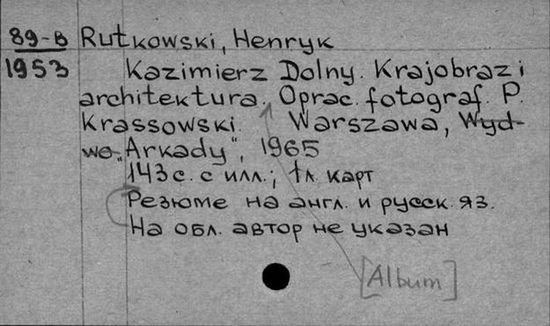 89-В Rutkowski, Henryk
1953 Kazimierz Dolny. Krajobraz i
architektura. Oprac. fotograf. P.
Krassowski. Warszawa, Wyd-
wo „Arkady", 1965
143 с. с илл.; 1 л. карт
Резюме на англ. и русск. яз.
На обл. автор не указан
[Album]